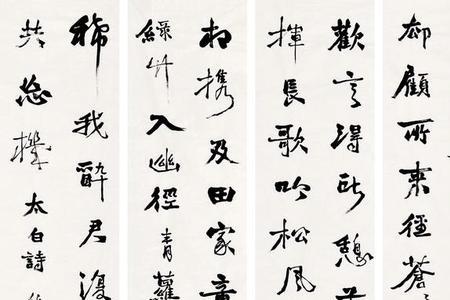 却顧所来徑蒼
歡言得所憩
揮長歌吟松風
相携及田家童
緑竹入幽徑青蘿
稀我醉君復
共忘機太白詩